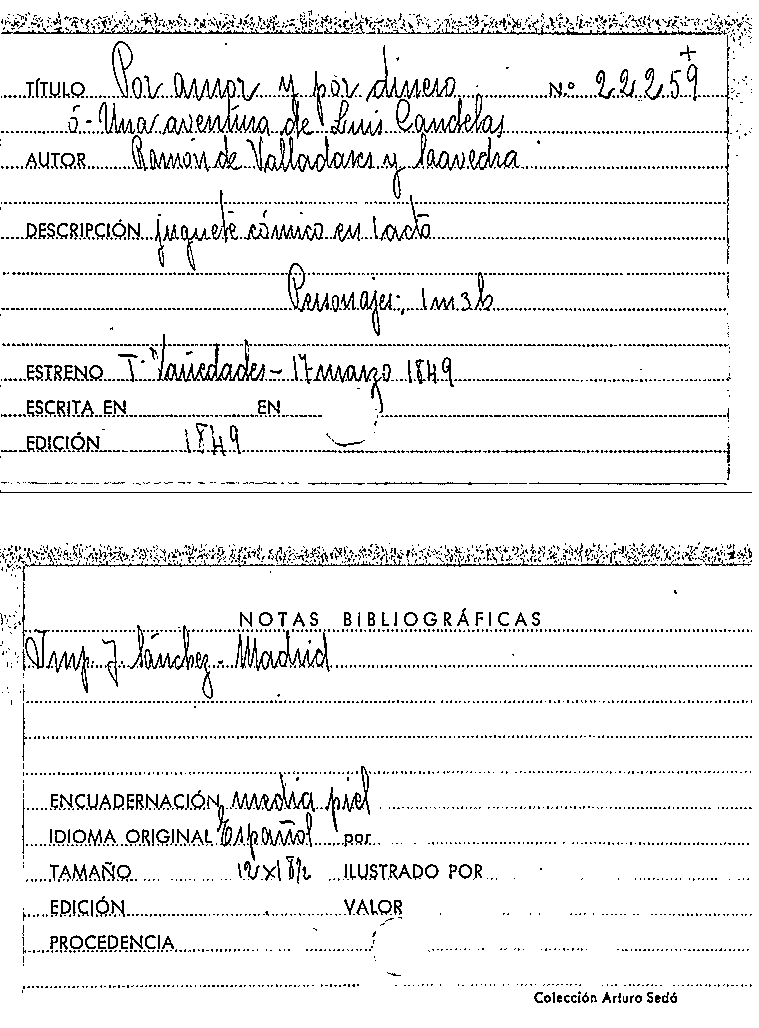 TÍTULO Por amor y por dinero N.º 22259 +
ó - Una aventura de Luis Candelas
AUTOR Ramón de Valladares y Saavedra
DESCRIPCIÓN juguete cómico en 1 acto
Personajes: 1m3h
ESTRENO T. Variedades - 17 marzo 1849
ESCRITA EN EN
EDICIÓN 1849
NOTAS BIBLIOGRÁFICAS
Imp. J. Sánchez - Madrid
ENCUADERNACIÓN media piel
IDIOMA ORIGINAL Español por
TAMAÑO 12x18½ ILUSTRADO POR
EDICIÓN VALOR
PROCEDENCIA
Colección Arturo Sedó